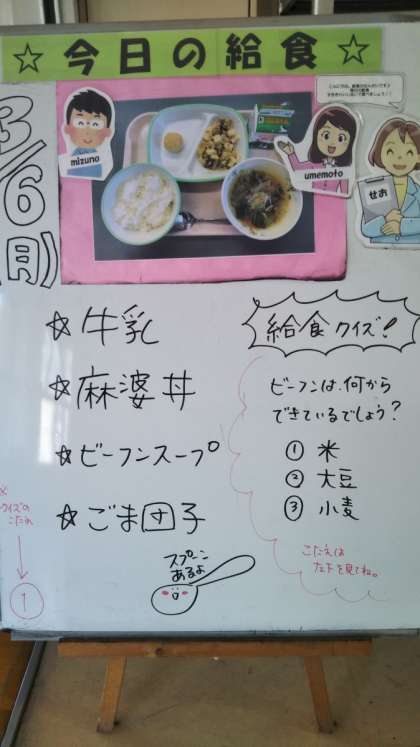 ☆今日の給食☆
3/6(月)
mizuno
umemoto
せお
☆牛乳
☆麻婆丼
☆ビーフンスープ
☆ごま団子
スプーン
あるよ
給食クイズ!
ビーフンは、何から
できているでしょう?
① 米
② 大豆
③ 小麦
こたえは
左下を見てね。
※
クイズの
こたえ
↓
①